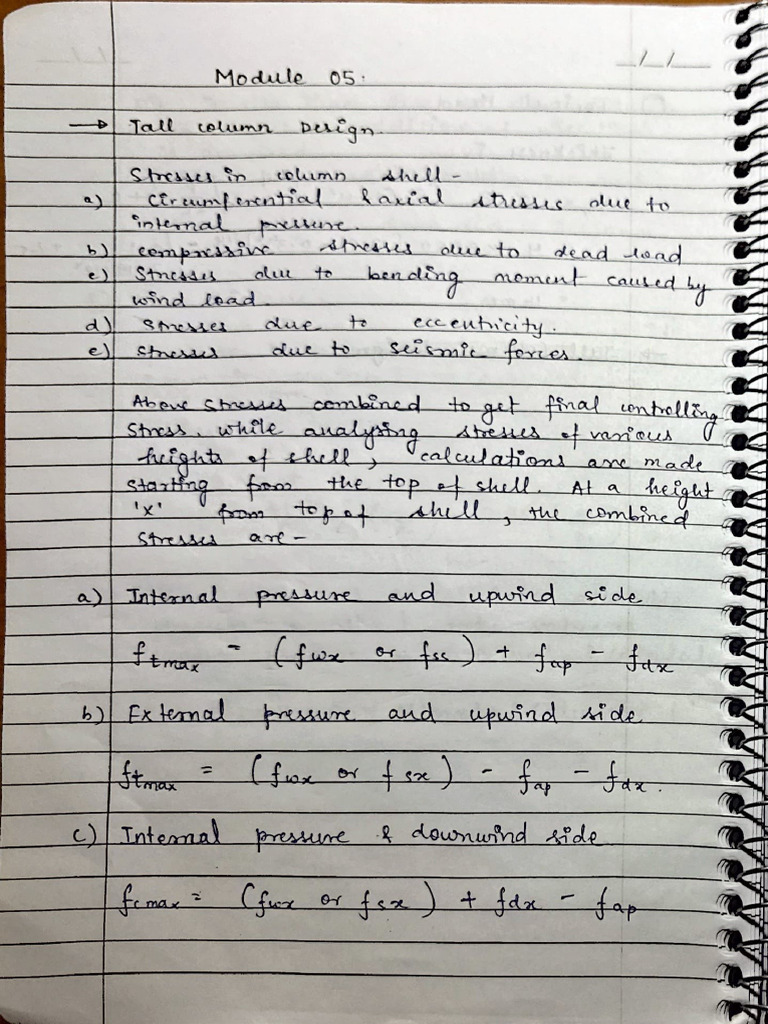 _/_/_
Module 05.
→ Tall column Design.
Stresses in column shell -
a) Circumferential & axial stresses due to
internal pressure.
b) compressive stresses due to dead load
c) Stresses due to bending moment caused by
wind load.
d) stresses due to eccentricity.
e) stresses due to seismic forces
Above stresses combined to get final controlling
stress. while analysing stresses of various
heights of shell, calculations are made
starting from the top of shell. At a height
'x' from top of shell, the combined
stresses are -
a) Internal pressure and upwind side
ftmax = (fwx or fss) + fap - fdx
b) External pressure and upwind side
ftmax = (fwx or fsx) - fap - fdx.
c) Internal pressure & downwind side
fcmax = (fwx or fsx) + fdx - fap